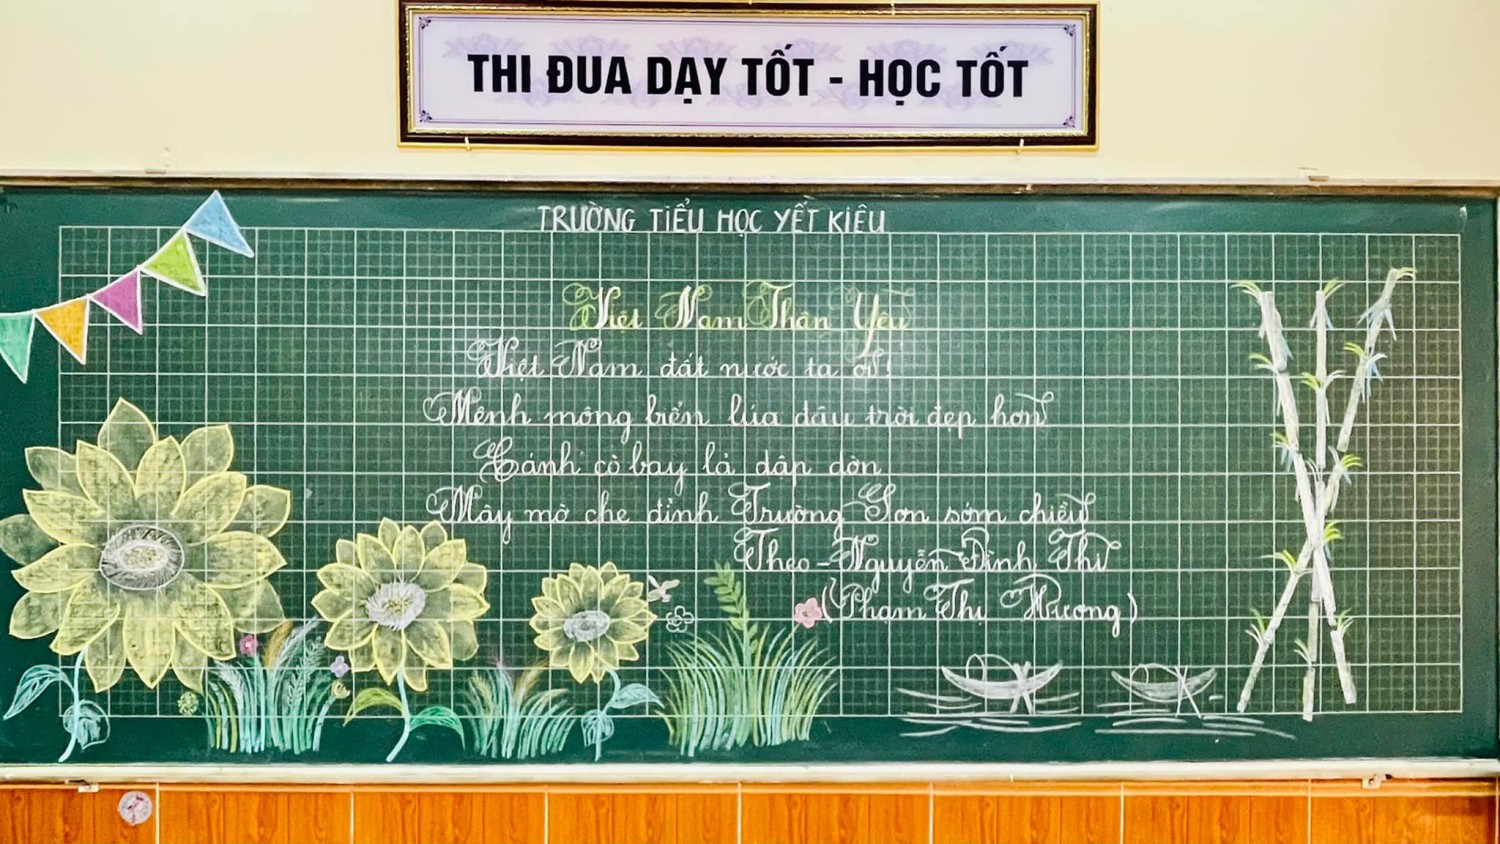 THI ĐUA DẠY TỐT - HỌC TỐT
TRƯỜNG TIỂU HỌC YẾT KIÊU
Việt Nam Thân Yêu
Việt Nam đất nước ta ơi!
Mênh mông biển lúa đâu trời đẹp hơn
Cánh cò bay lả dập dờn
Mây mờ che đỉnh Trường Sơn sớm chiều
Theo - Nguyễn Đình Thi
(Phạm Thị Hương)